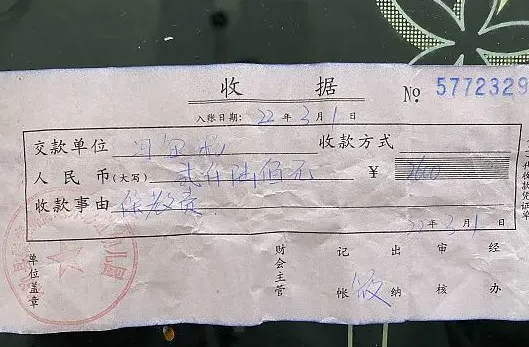 收据
№ 5772329
入账日期: 22年3月1日
交款单位 冯 收款方式
人民币(大写) 贰仟陆佰元 ¥ 2600
收款事由 保教费
22年3月1日
单位盖章 财会主管 记帐 出纳 审核 经办